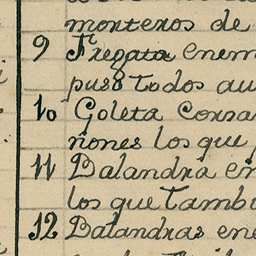 morteros de
9 Fregata enem
puso todos au
10 Goleta Corsa
ñones los que
11 Balandra en
los que tambi
12 Balandras ene